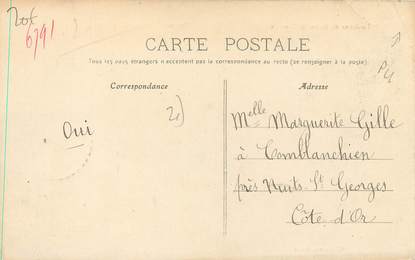 20f
6791
CARTE POSTALE
Tous les pays étrangers n'acceptent pas la correspondance au recto (se renseigner à la poste).
Correspondance
Adresse
2)
Oui
Melle Marguerite Gille
à Comblanchien
près Nuits St Georges
Côte d'Or